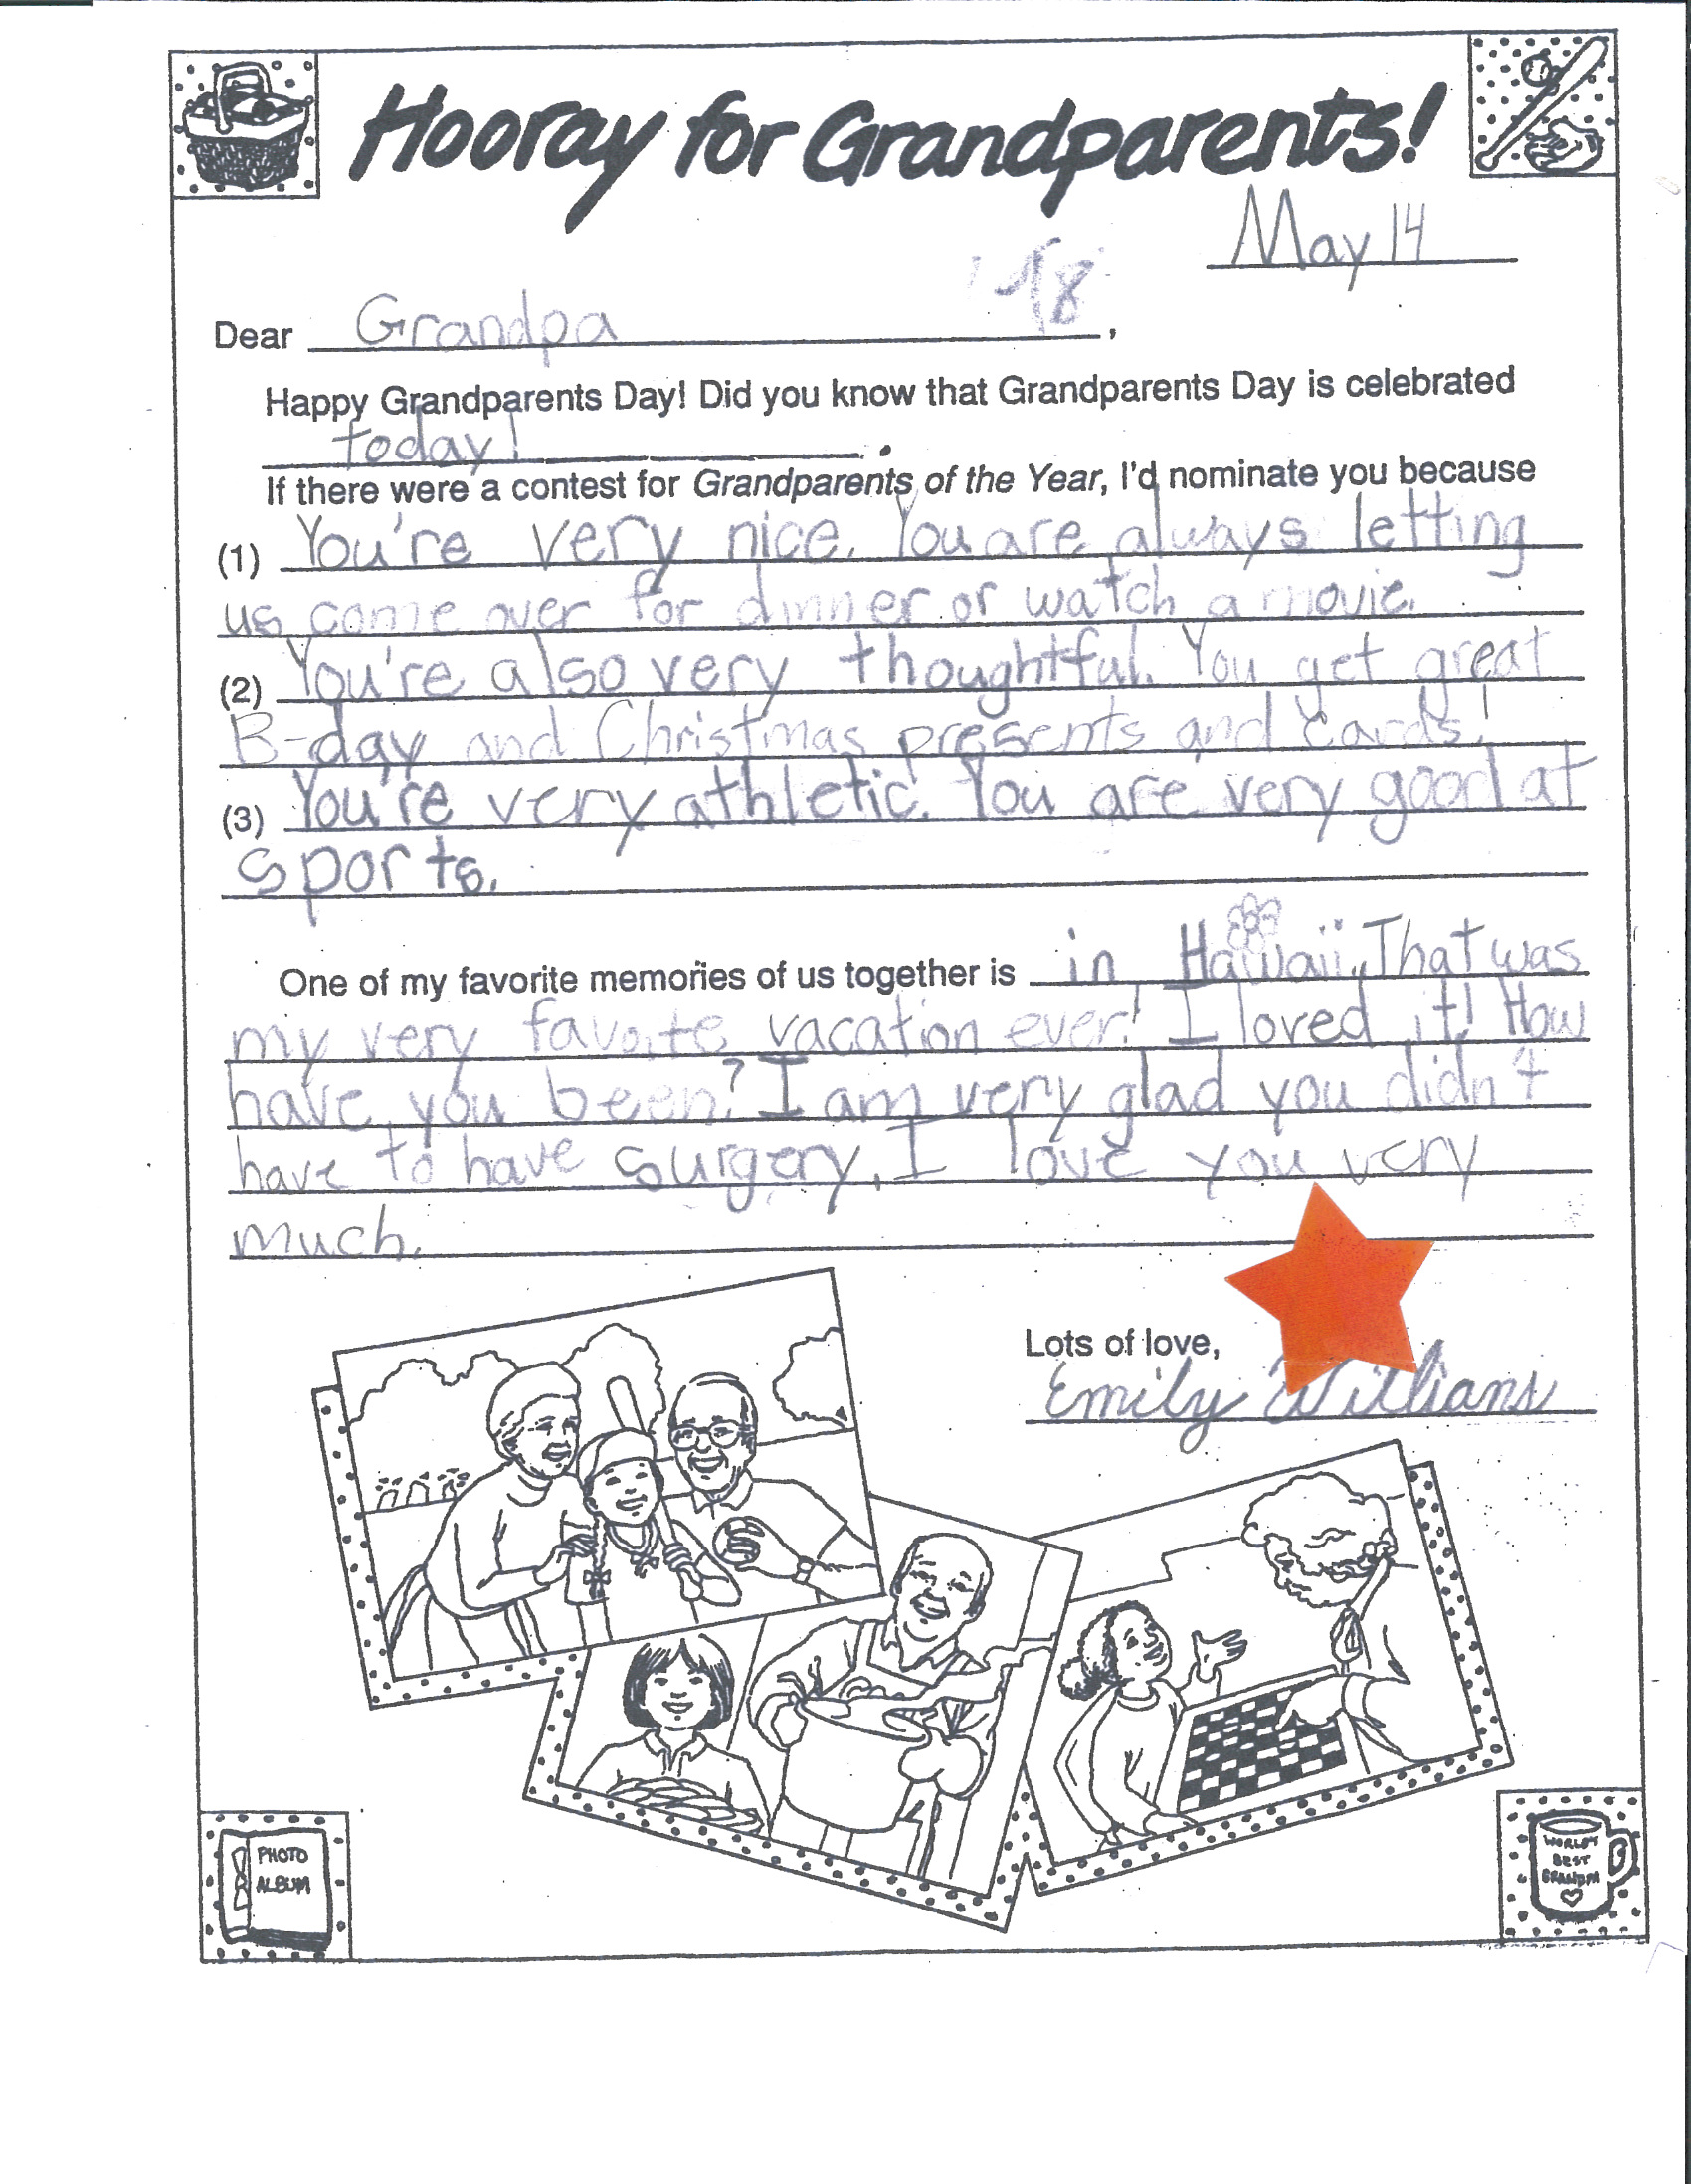 Hooray for Grandparents!
May 14
'98
Dear Grandpa,
Happy Grandparents Day! Did you know that Grandparents Day is celebrated
today! .
If there were a contest for Grandparents of the Year, I'd nominate you because
(1) You're very nice. You are always letting
us come over for dinner or watch a movie.
(2) You're also very thoughtful. You get great
B-day and Christmas presents and cards!
(3) You're very athletic. You are very good at
sports.
One of my favorite memories of us together is in Hawaii. That was
my very favoite vacation ever! I loved it! How
have you been? I am very glad you didn't
have to have surgery, I love you very
much.
Lots of love,
Emily Willians
PHOTO
ALBUM
WORLD'S
BEST
GRANDPA